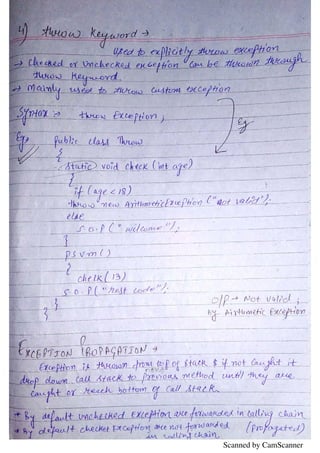 4) throw keyword →
used to explicitly throw exception
→ checked or unchecked exception can be thrown through
throw keyword.
→ mainly used to throw custom exception
Syntax :- throw Exception;
Eg
Eg:- public class Throw
{
static void check (int age)
{
if (age < 18)
throw new ArithmeticException ("not valid");
else
S.O.P (" welcome");
}
psvm()
{
check (13)
S.O.P ("rest code");
}
}
O/P → Not valid;
by Arithmetic Exception
EXCEPTION PROPAGATION →
Exception is thrown from top of stack & if not caught it
drop down call stack to previous method until they are
caught or reach bottom of call stack
* By default unchecked Exception are forwarded in calling chain
* By default checked Exception are not forwarded (propagated)
in calling chain
Scanned by CamScanner